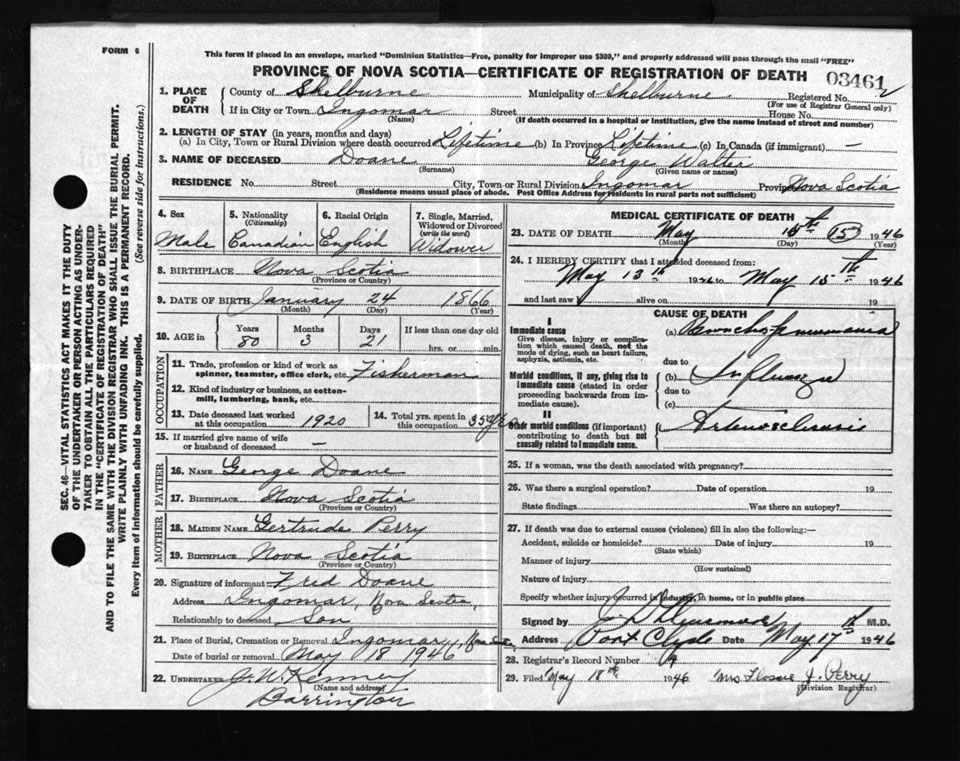 FORM 6
This form if placed in an envelope, marked "Dominion Statistics—Free, penalty for improper use $300," and properly addressed will pass through the mail "FREE"
PROVINCE OF NOVA SCOTIA—CERTIFICATE OF REGISTRATION OF DEATH
03461
SEC. 46—VITAL STATISTICS ACT MAKES IT THE DUTY
OF THE UNDERTAKER OR PERSON ACTING AS UNDER-
TAKER TO OBTAIN ALL THE PARTICULARS REQUIRED
IN THE "CERTIFICATE OF REGISTRATION OF DEATH"
AND TO FILE THE SAME WITH THE DIVISION REGISTRAR WHO SHALL ISSUE THE BURIAL PERMIT.
WRITE PLAINLY WITH UNFADING INK. THIS IS A PERMANENT RECORD.
Every item of information should be carefully supplied. (See reverse side for instructions.)
1. PLACE OF DEATH
County of Shelburne Municipality of Shelburne Registered No.
(For use of Registrar General only)
If in City or Town Ingomar Street House No.
(Name) (If death occurred in a hospital or institution, give the name instead of street and number)
2. LENGTH OF STAY (in years, months and days)
(a) In City, Town or Rural Division where death occurred Lifetime (b) In Province Lifetime (c) In Canada (if immigrant) —
3. NAME OF DECEASED Doane George Walter
(Surname) (Given name or names)
RESIDENCE No. Street City, Town or Rural Division Ingomar Province Nova Scotia
(Residence means usual place of abode. Post Office Address for residents in rural parts not sufficient)
4. Sex Male
5. Nationality (Citizenship) Canadian
6. Racial Origin English
7. Single, Married, Widowed or Divorced (write the word) Widower
8. BIRTHPLACE Nova Scotia
(Province or Country)
9. DATE OF BIRTH January 24 1866
(Month) (Day) (Year)
10. AGE IN Years 80 Months 3 Days 21 If less than one day old
hrs. or min.
OCCUPATION
11. Trade, profession or kind of work as spinner, teamster, office clerk, etc. Fisherman
12. Kind of industry or business, as cotton-mill, lumbering, bank, etc.
13. Date deceased last worked at this occupation 1920
14. Total yrs. spent in this occupation 35 yrs
15. If married give name of wife or husband of deceased —
FATHER
16. NAME George Doane
17. BIRTHPLACE Nova Scotia
(Province or Country)
MOTHER
18. MAIDEN NAME Gertrude Perry
19. BIRTHPLACE Nova Scotia
(Province or Country)
20. Signature of informant Fred Doane
Address Ingomar, Nova Scotia,
Relationship to deceased Son
21. Place of Burial, Cremation or Removal Ingomar, Nova Scotia
Date of burial or removal May 18 1946
22. UNDERTAKER J. W. Kenney
(Name and address)
Barrington
MEDICAL CERTIFICATE OF DEATH
23. DATE OF DEATH May 15th (15) 1946
(Month) (Day) (Year)
24. I HEREBY CERTIFY that I attended deceased from:
May 13th 1946 to May 15th 1946
and last saw h alive on 19
CAUSE OF DEATH
I
Immediate cause
Give disease, injury or complication which caused death, not the mode of dying, such as heart failure, asphyxia, asthenia, etc.
(a) Bronchopneumonia
due to
Morbid conditions, if any, giving rise to immediate cause (stated in order proceeding backwards from immediate cause).
(b) Influenza
due to
(c)
II
Other morbid conditions (if important) contributing to death but not causally related to immediate cause.
Arteriosclerosis
25. If a woman, was the death associated with pregnancy?
26. Was there a surgical operation? Date of operation 19
State findings Was there an autopsy?
27. If death was due to external causes (violence) fill in also the following:—
Accident, suicide or homicide? Date of injury 19
(State which)
Manner of injury
(How sustained)
Nature of injury
Specify whether injury occurred in industry, in home, or in public place
Signed by M.D.
Address Port Clyde Date May 17th 1946
28. Registrar's Record Number
29. Filed May 18th 1946 Mrs J. Perry
(Division Registrar)